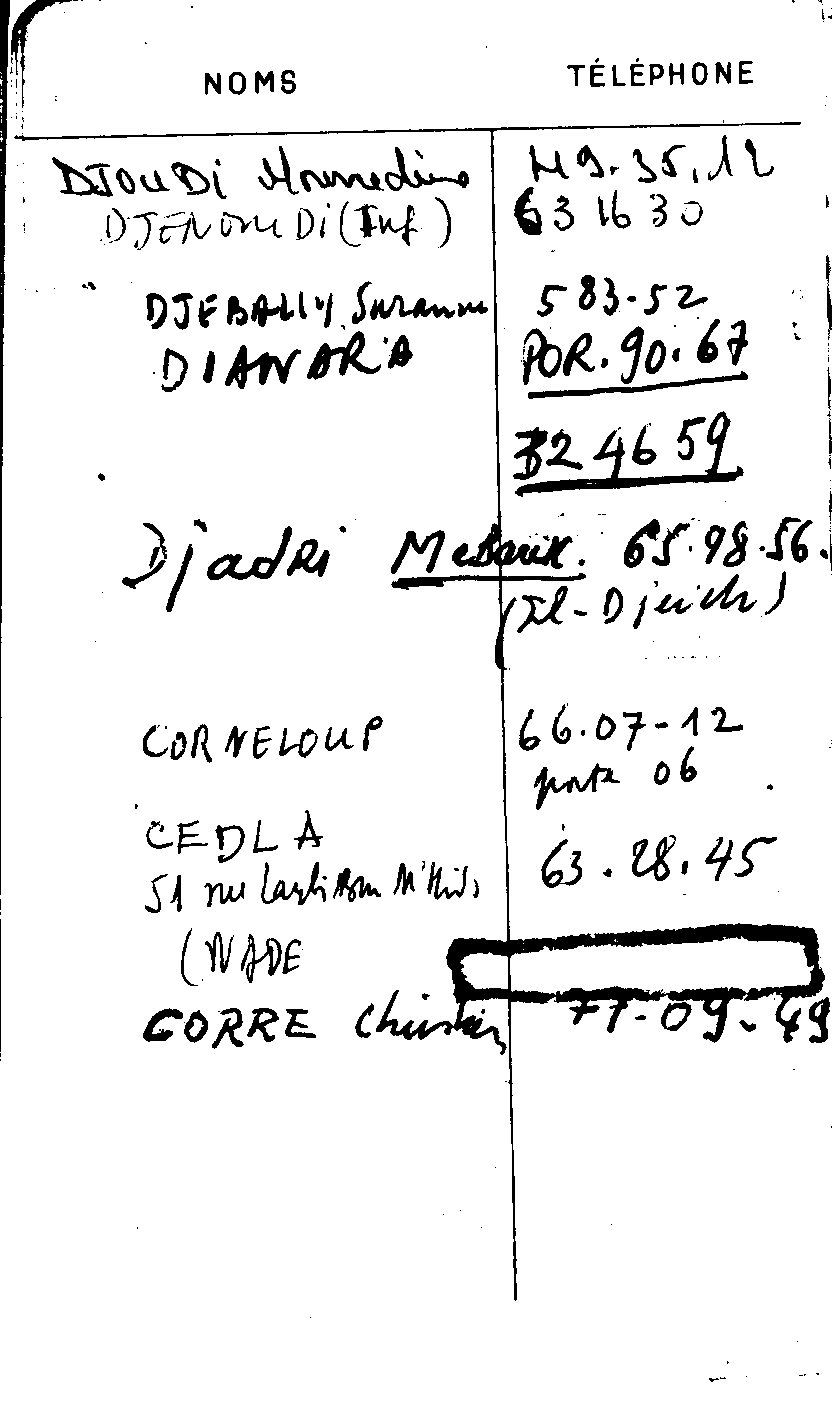 NOMS TÉLÉPHONE
DJOUDI 35.12
DJENOUDI (Inf) 63 16 30
DJEBALLY Suzanne 583-52
DIAWARA POR. 90. 67
324659
Djadri Mebarek. 65.98.56.
(El-Djeich)
CORNELOUP 66.07-12
poste 06
CEDLA
51 rue 63.28.45
(NADE
CORRE Christian 77-09-49